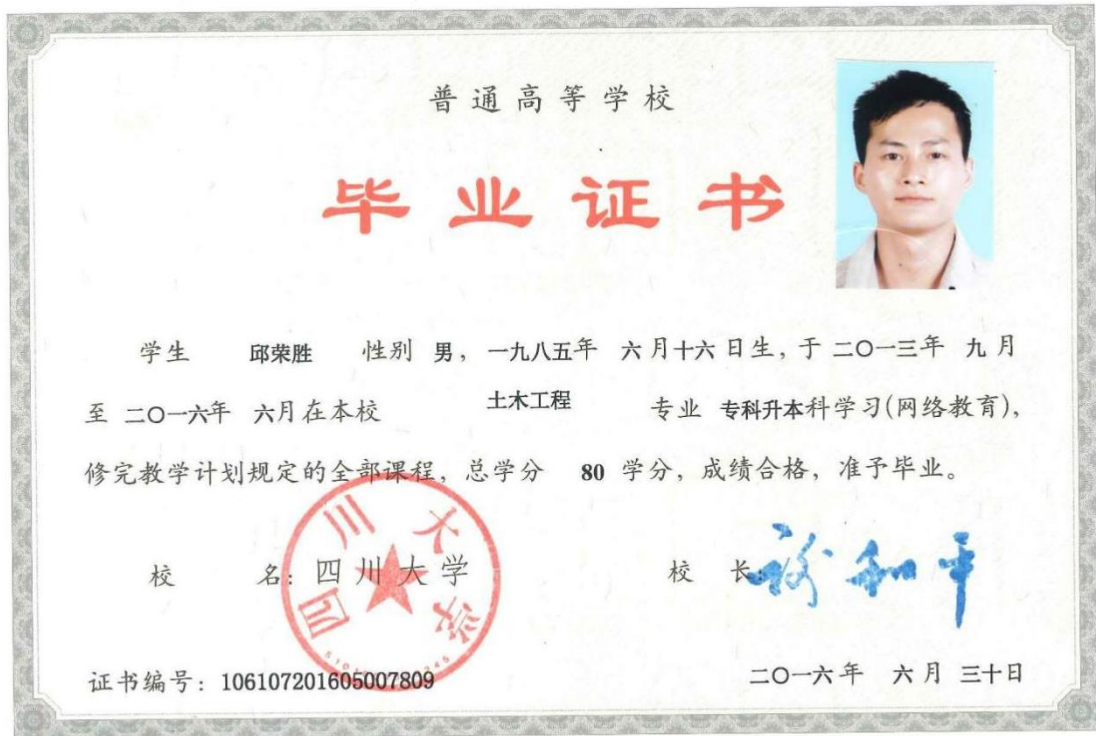 普通高等学校
毕业证书
学生 邱荣胜 性别 男，一九八五年 六月十六日生，于二〇一三年 九月
至 二〇一六年 六月在本校 土木工程 专业 专科升本科学习(网络教育)，
修完教学计划规定的全部课程，总学分 80 学分，成绩合格，准予毕业。
四川大学
校 名：四川大学 校 长：谢和平
证书编号：106107201605007809 二〇一六年 六月 三十日